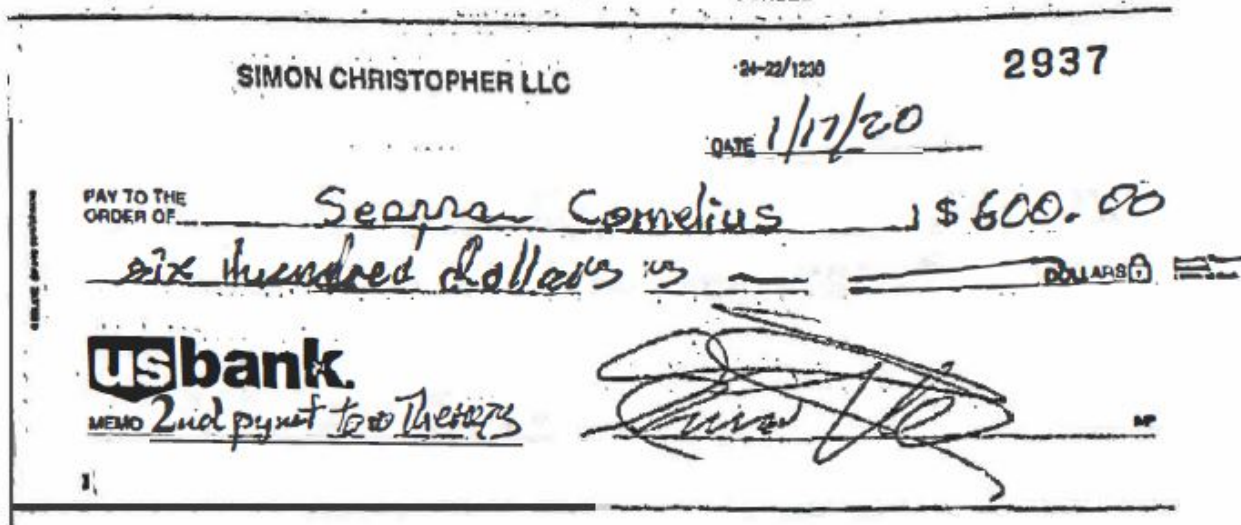 SIMON CHRISTOPHER LLC
24-22/1230
2937
DATE 1/17/20
PAY TO THE
ORDER OF Cornelius $ 600.00
six hundred dollars DOLLARS
usbank.
MEMO 2nd pymt
MP